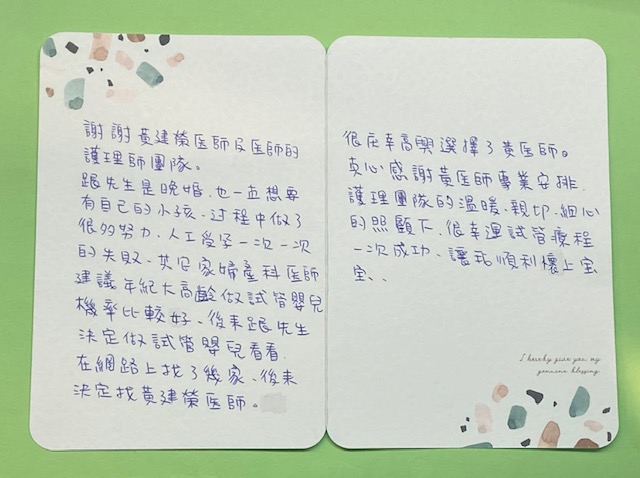 謝謝黃建榮医師及医師的
護理師團隊。
跟先生是晚婚、也一直想要
有自己的小孩、过程中做了
很多努力、人工受孕一次一次
的失敗、
家婦產科医師
建議年紀大高齡做試管嬰兒
機率比較好、後來跟先生
決定做試管嬰兒看看、
在網路上找了幾家、後來
決定找黃建榮医師。
很庆幸高興選擇了黃医師。
真心感謝黃医師專業安排、
護理團隊的溫暖、親切、細心
的照顧下、很幸運試管療程
一次成功、讓我順利懷上宝
宝、、
I hereby give you my
genuine blessing